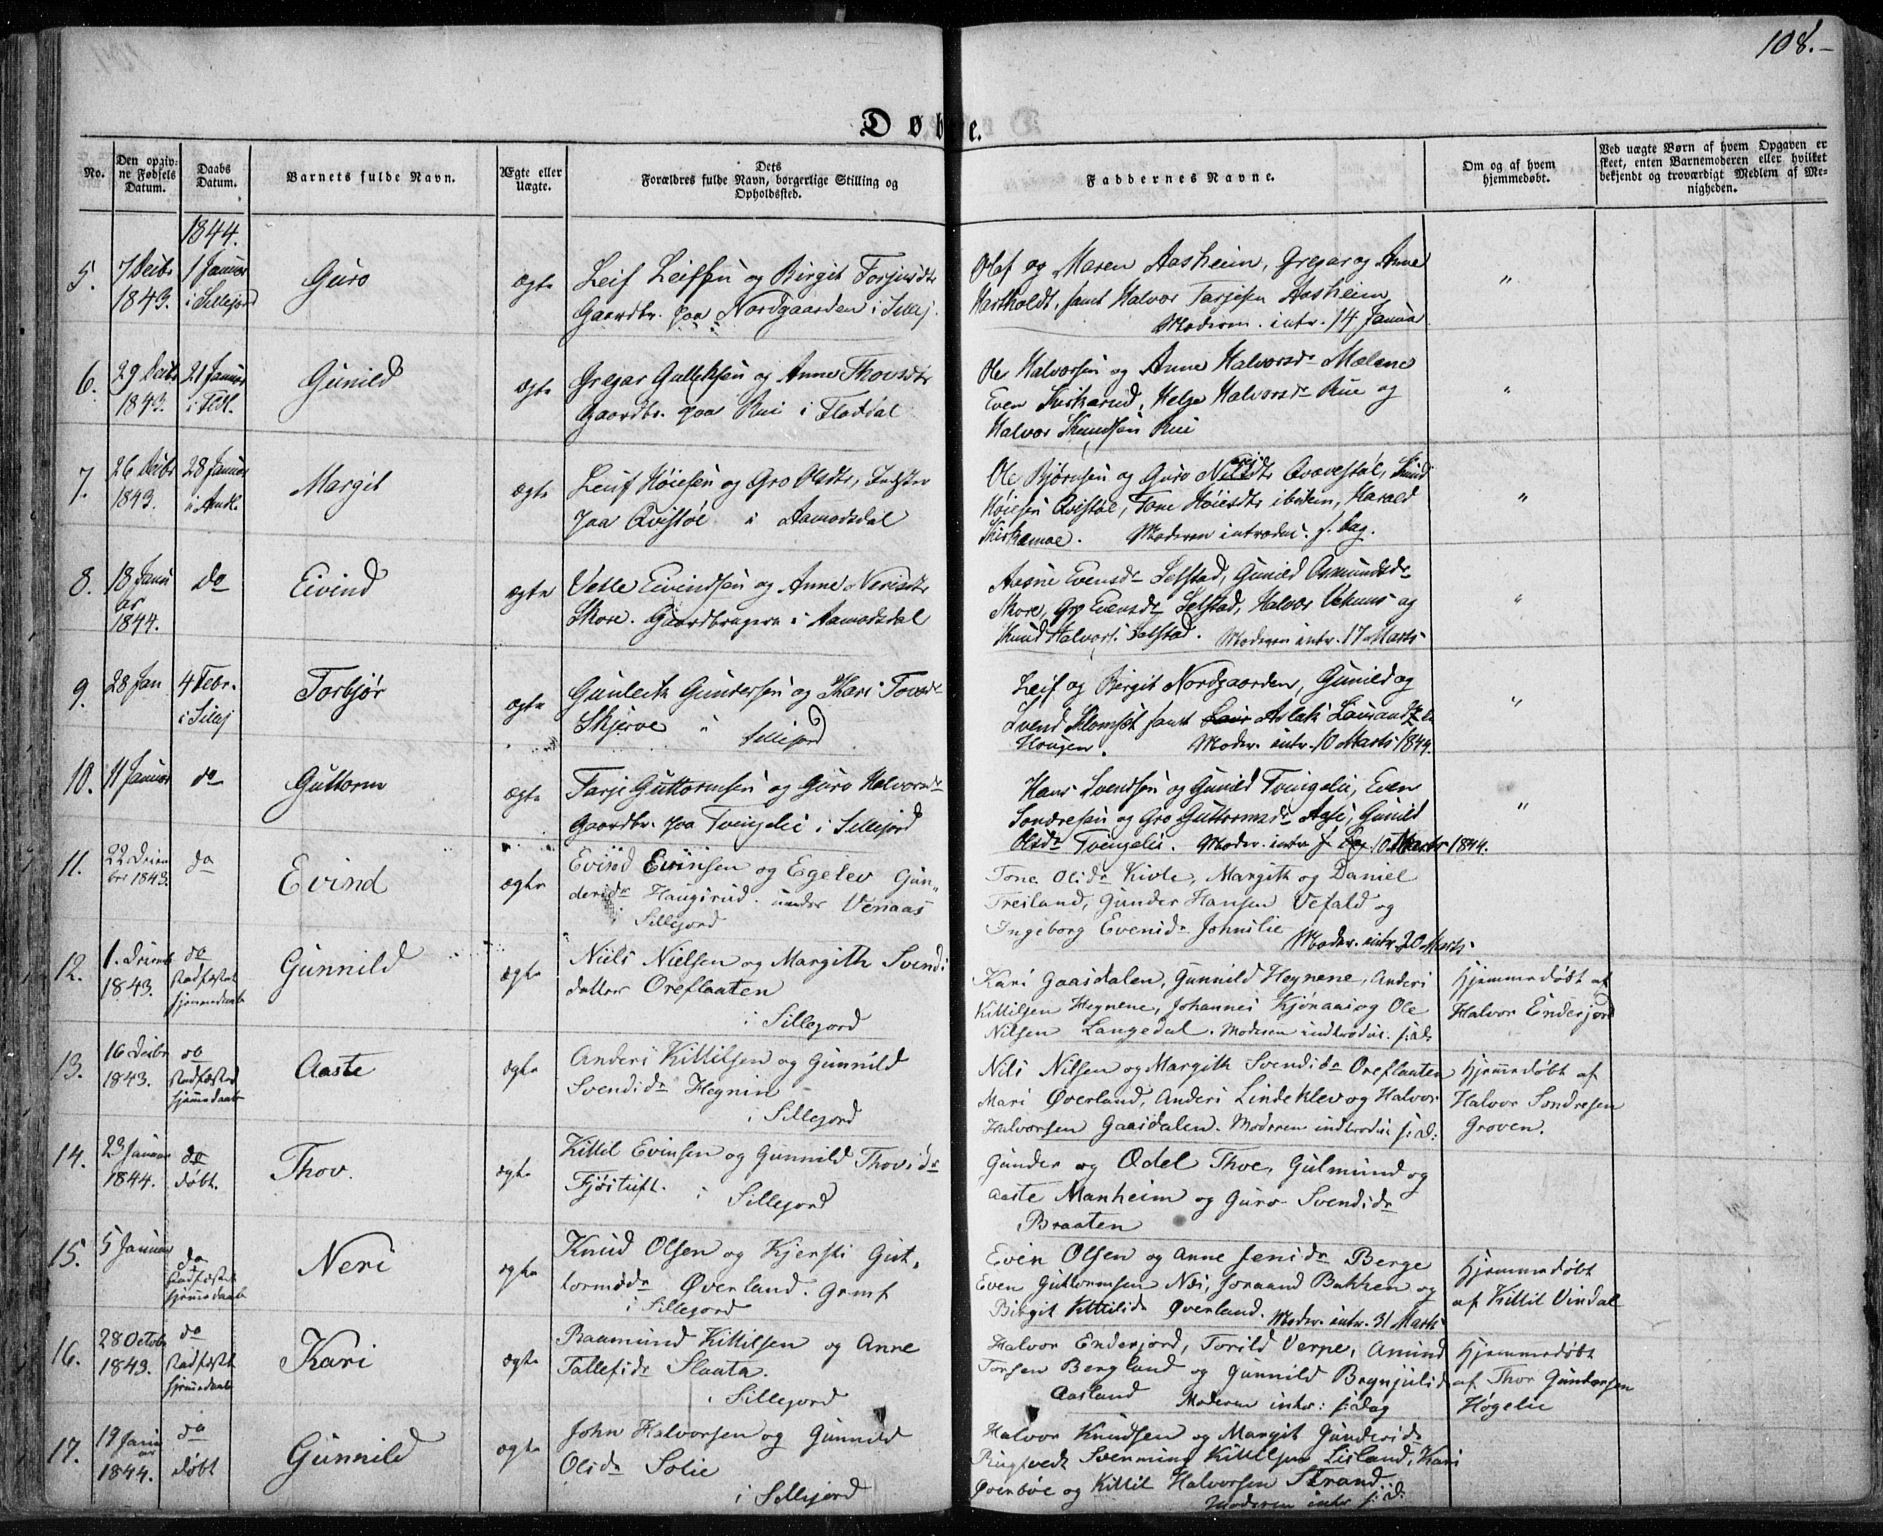 108.-
Døbte.
No.
Den opgiv-
ne Fødsels
Datum.
Daabs
Datum.
Barnets fulde Navn.
Ægte eller
Uægte.
Dets
Forældres fulde Navn, borgerlige Stilling og
Opholdssted.
Faddernes Navne.
Om og af hvem
hjemmedøbt.
Ved uægte Børn af hvem Opgaven er
skeet, enten Barnemoderen eller hvilket
bekjendt og troværdigt Medlem af Me-
nigheden.
1844.
5.
7 Decbr
1843.
1 Januar
i Sillejord
Guro
ægte
Leif Leifsen og Birgit Torjusdtr
Gaardbr. paa Nordgaarden i Sillej.
Olaf og Maren Aasheim, Gregar og Anne
Hartholdt, samt Halvor Tarjesen Aasheim
Moderen intr. 14 Janua
"
6.
29 Decbr
1843.
21 Januar
Gunild
ægte
Gregar Gulleksen og Anne Thovsdtr
Gaardbr. paa Rui i Flatdal
Ole Halvorsen og Anne Halvorsdr Mælene
Even, Helge Halvorsdr Rue og
Halvor Knudsen Rui
"
7.
26 Decbr
1843.
28 Januar
Margit
ægte
Leif Høiesen og Gro Olsdtr, Indster
paa Qvistøl i Aamodsdal
Ole Bjørnsen og Guro Qvævestøl, Knud
Høiesen Qvistøl, Tone Høiesdtr ibidem, Harald
Moderen introduc. s. Dag.
"
8.
18 Janu
ar
1844.
do
Eivind
ægte
Vetle Eivindsen og Anne Nerisdtr
Skore. Gaardbrugere i Aamodsdal
Aasne Evensdr Selstad, Gunild Asmundsdr
Skore, Gro Evensdr Selstad, Halvor og
Knud Halvors. Selstad. Moderen intr. 17 Marts
"
9.
28 Jan
4 Febr.
i Sillej
Torbjør
ægte
Gunleik Gundersen og Kari Tovsdr
Skjerve i Sillejord
Leif og Birgit Nordgaarden, Gunild og
Svend Flomset samt Aslak
Haugen. Moder. intr. 10 Marts 1844.
"
10.
11 Januar
do
Guttorm
ægte
Tarje Guttormsen og Guro Halvorsdr
Gaardbr. paa Tveingelie i Sillejord
Hans Svendsen og Gunild Tveingelie, Even
Sondresen og Gro Guttormsdr, Gunild
Olsdr Tveingelie. Moder. intr. 10 Marts 1844.
"
11.
22 Decem
ber 1843.
do
Evind
ægte
Evind Evinsen og Egelev Gun-
dersdr Haugerud. under Venaas
i Sillejord
Tone Olsdr Kivle, Margith og Daniel
Treiland, Gunder Hansen Vefald og
Ingeborg Evensdr Jonsilie
Moder. intr. 20 Marts
12.
1. Decem
1843.
do
stadfæstet
hjemmedaab
Gunnild
ægte
Niels Nielsen og Margith Svends
datter Oreflaaten
i Sillejord
Kari Gaasdalen, Gunnild Hegnene, Anders
Kittilsen Hegnene, Johannes Kjønaas og Ole
Nilsen Langedal. Moderen indtroduc. s: d:
Hjemmedøbt af
Halvor Enderjord
13.
16 Decbr
1843.
do
stadfæstet
hjemmedaab
Aaste
ægte
Anders Kittilsen og Gunnild
Svendsdr Hegnin
i Sillejord
Nils Nilsen og Margith Svendsdr Oreflaaten
Mari Øverland, Anders Lindeklev og Halvor
Halvorsen Gaasdalen. Moderen indtroduc s: d:
Hjemmedøbt af
Halvor Sondresen
Groven.
14.
23 Januar
1844.
do
døbt.
Thov.
ægte
Kittil Evinsen og Gunnild Thovsdr
Fjøstuft. i Sillejord
Gunder og Odel Thoe, Gulmund og
Aaste Manheim og Guro Svendsdr
Braaten
15.
5 Januar
do
stadfæstet
hjemmedaab
Neri
ægte
Knud Olsen og Kjersti Gut-
tormsdr Øverland. Grmf
i Sillejord
Even Olsen og Anne Jensdr Berge
Even Guttormsen Næs, Joraand Bakken og
Birgit Kittilsdr Øverland. Moder. intr. 31 Marts
Hjemmedøbt
af Kittil Vindal
16.
28 Octobr
1843.
do
stadfæstet
hjemmedaab
Kari
ægte
Raamund Kittilsen og Anne
Tallefsdr Slaata.
i Sillejord
Halvor Enderjord, Torild Verpe, Amund
Torsen Bergland og Gunnild Brynjulsd
Aasland Moderen intr: s: Dag
Hjemmedøbt
af Thor Gundersen
Høgelie
17.
19 Janu
ar
1844.
do
døbt
Gunnild
ægte
John Halvorsen og Gunnild
Olsdr Solie
i Sillejord
Halvor Knudsen og Margit Gundersdr
Ringtvedt Svenning Kittilsen Lisland, Kari
Øvenbøe og Kittil Halvorsen Strand.
Moderen intr s: d: